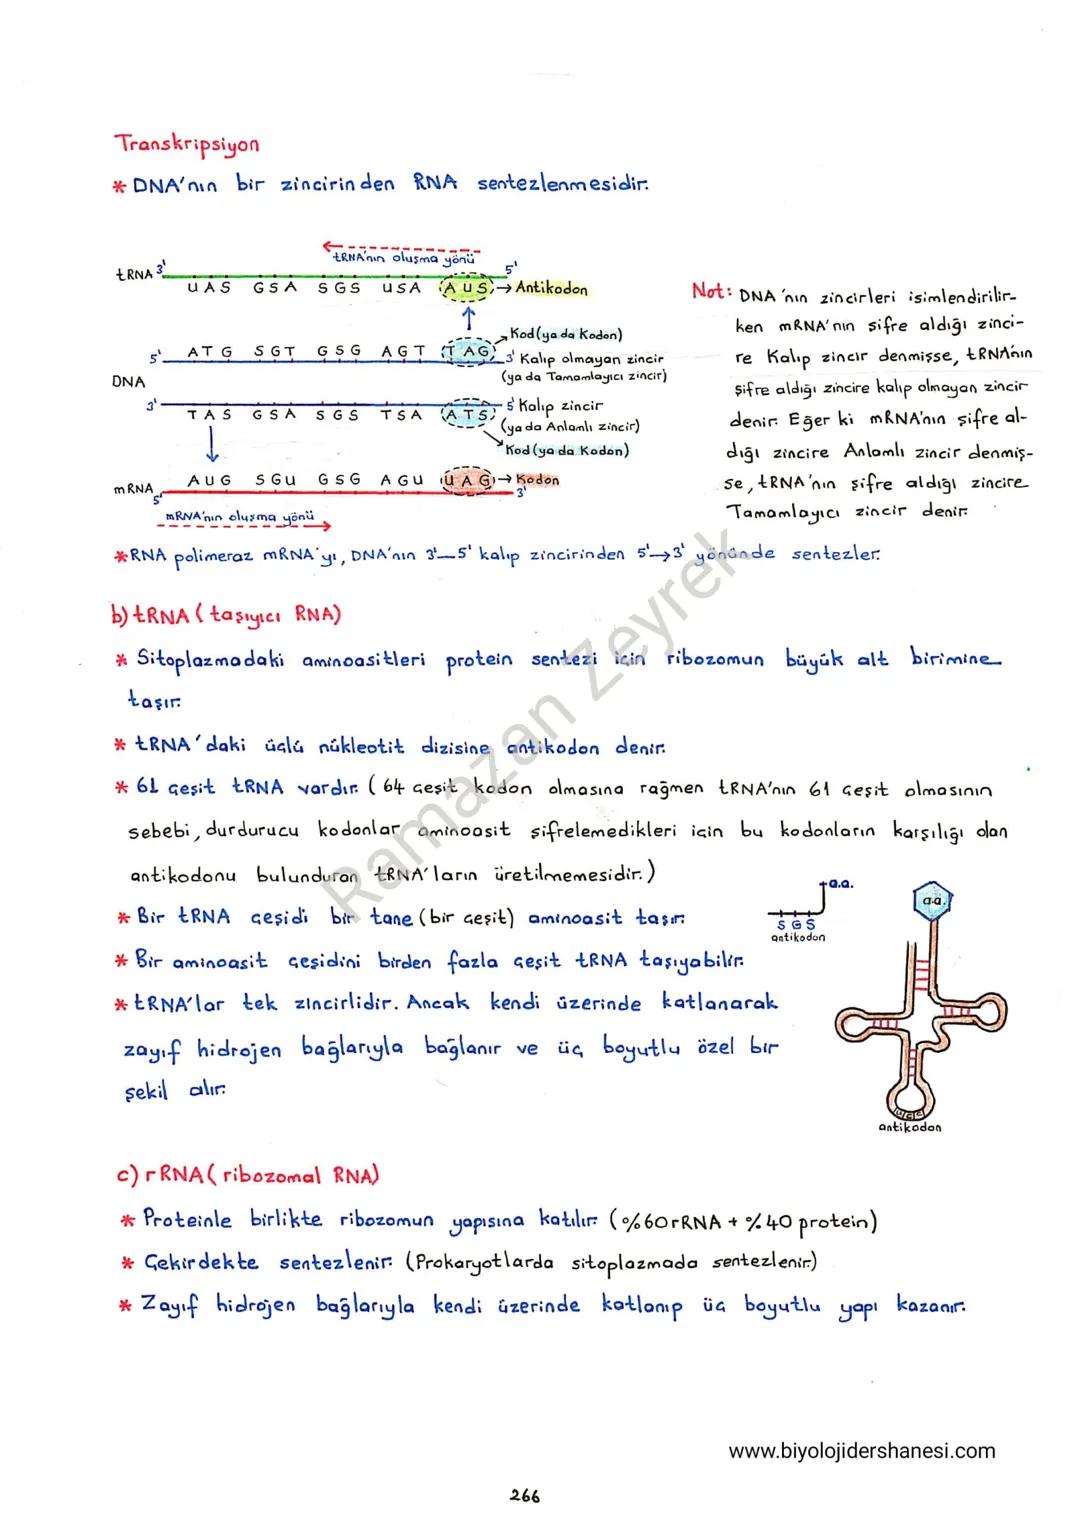 Transkripsiyon
* DNA'nın bir zincirinden RNA sentezlenmesidir.
tRNA'nın oluşma yönü
tRNA 3' 5'
UAS GSA SGS USA AUS → Antikodon
Kod (ya da Kodon)
5' ATG SGT GSG AGT TAG 3' Kalıp olmayan zincir
(ya da Tamamlayıcı zincir)
DNA
3' TAS GSA SGS TSA ATS 5' Kalıp zincir
(ya da Anlamlı zincir)
Kod (ya da Kodon)
mRNA AUG SGU GSG AGU UAG → Kodon
5' 3'
mRNA'nın oluşma yönü
Not: DNA'nın zincirleri isimlendirilir-
ken mRNA'nın şifre aldığı zinci-
re Kalıp zincir denmişse, tRNA'nın
şifre aldığı zincire kalıp olmayan zincir
denir. Eğer ki mRNA'nın şifre al-
dığı zincire Anlamlı zincir denmiş-
se, tRNA'nın şifre aldığı zincire
Tamamlayıcı zincir denir.
* RNA polimeraz mRNA'yı, DNA'nın 3'—5' kalıp zincirinden 5'→3' yönünde sentezler.
b) tRNA (taşıyıcı RNA)
* Sitoplazmadaki aminoasitleri protein sentezi için ribozomun büyük alt birimine
taşır.
* tRNA'daki üçlü nükleotit dizisine antikodon denir.
* 61 çeşit tRNA vardır. (64 çeşit kodon olmasına rağmen tRNA'nın 61 çeşit olmasının
sebebi, durdurucu kodonlar aminoasit şifrelemedikleri için bu kodonların karşılığı olan
antikodonu bulunduran tRNA'ların üretilmemesidir.)
* Bir tRNA çeşidi bir tane (bir çeşit) aminoasit taşır.
* Bir aminoasit çeşidini birden fazla çeşit tRNA taşıyabilir.
* tRNA'lar tek zincirlidir. Ancak kendi üzerinde katlanarak
zayıf hidrojen bağlarıyla bağlanır ve üç boyutlu özel bir
şekil alır.
a.a.
SGS
antikodon
a.a.
antikodon
c) rRNA (ribozomal RNA)
* Proteinle birlikte ribozomun yapısına katılır. (%60 rRNA + %40 protein)
* Çekirdekte sentezlenir. (Prokaryotlarda sitoplazmada sentezlenir.)
* Zayıf hidrojen bağlarıyla kendi üzerinde katlanıp üç boyutlu yapı kazanır.
Ramazan Zeyrek
www.biyolojidershanesi.com
266